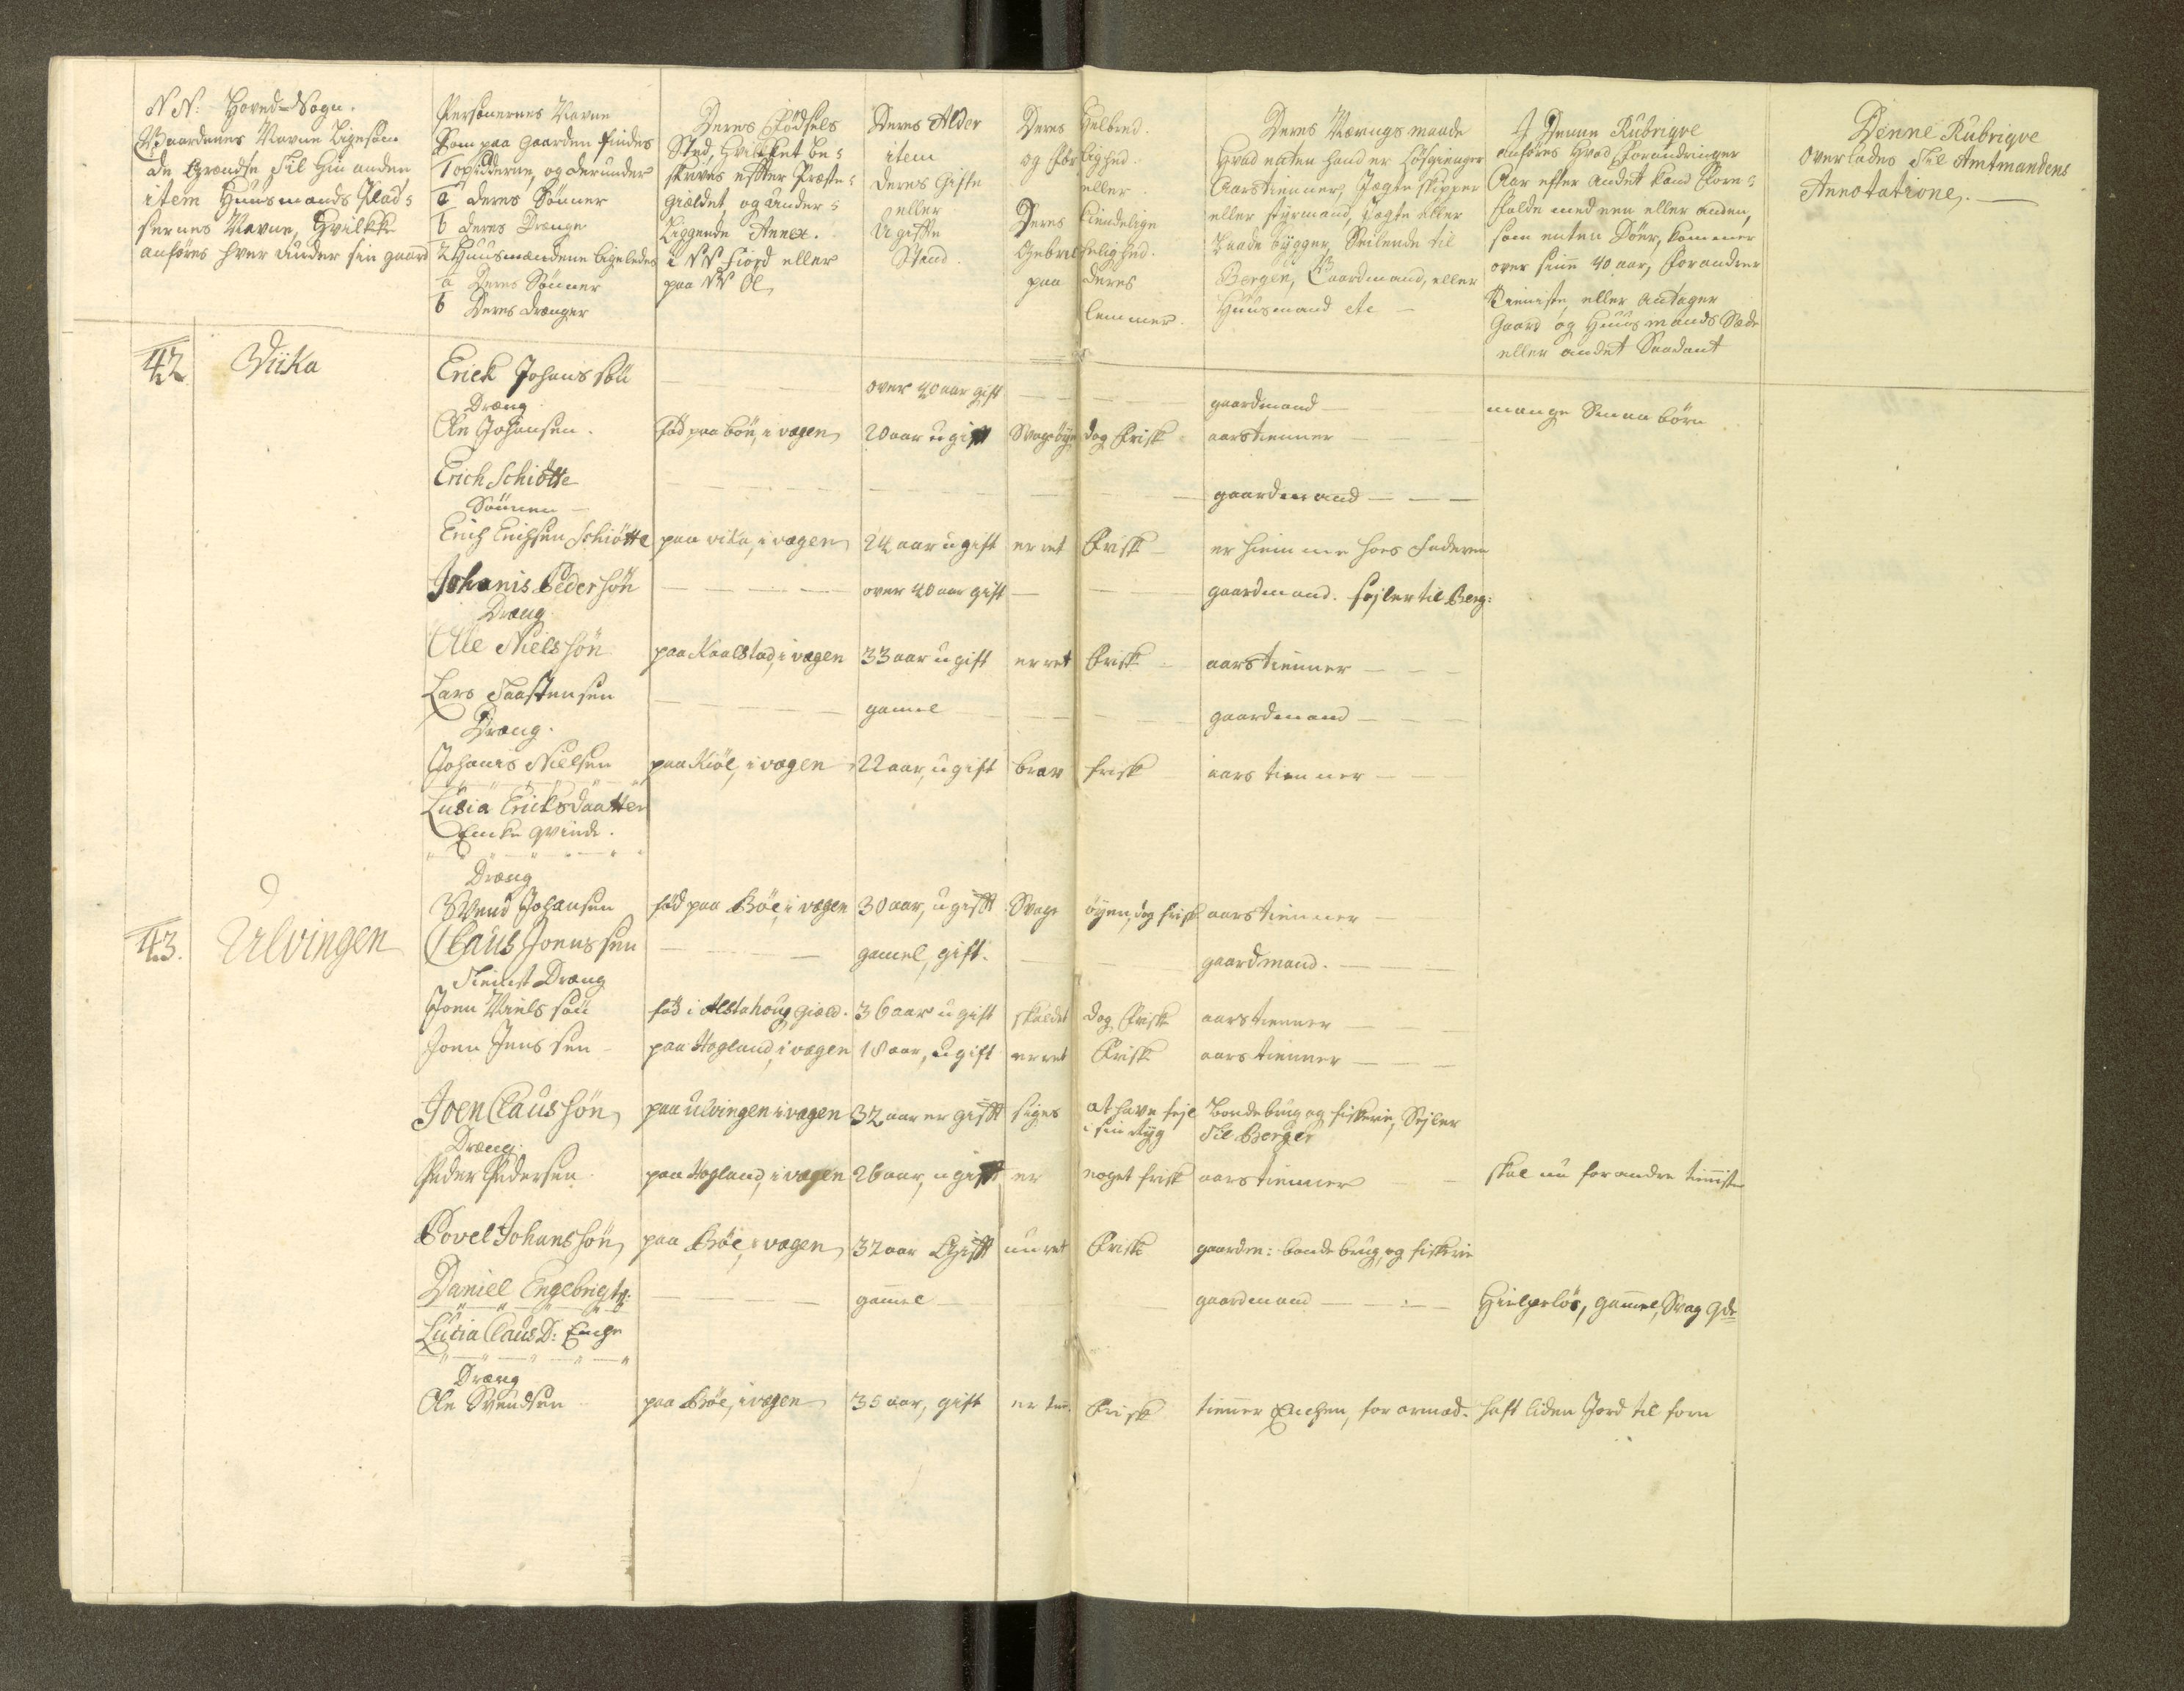 NN: Hoved-Sogn.
Gaardenes Navne Ligesom
de Grændse Til Hin anden
item Huusmands Plad-
sernes Navne, Hvilkke
anføres hver under sin gaard
Personernes Navne
Som paa Gaarden findes
1 Opsidderne, og derunder
a deres Sønner
b deres Drænge
2 Huusmændene ligeledes
a Deres Sönner
b Deres drænger
Deres Födsels
Sted, Hvilket be-
skrives effter Præste-
gieldet og under-
Liggende Annex.
i NN fiord eller
paa NN Öe
Deres Alder
item
deres Gifte
eller
Ugiffte
Stand.
Deres Helbred.
og för lighed.
eller
Deres Kiendelige
Gebrekkelighed.
paa deres
lemmer.
Deres Nærings maade
Hvad enten hand er Lösgienger
Aarstienner, Jægte skipper
eller styrmand, Jægte eller
Baade bygger, Seilende til
Bergen, Gaardmand, eller
Huusmand etc
I Denne Rubriqve
anföres Hvad Forandringer
Aar effter andet kand Fore-
falde med een eller anden,
som enten Döer, kommer
over sine 40 aar, forandrer
Tieniste eller antager
Gaard og Huusmands Sæde
eller andet Saadant
Denne Rubriqve
overlades Til Amtmandens
Annotatione.
42 Viika
Erick Johanssön over 40 aar gift gaardmand mange Smaa börn
Dreng
Ole Johansen. föd paa böe, i vægen 20 aar ugift Svage öyne dog Frisk aarstienner
Erich Schiötte gaardmand
Sönnen
Erich Erichsen Schiötte paa vika, i vægen 24 aar ugift er ret Frisk er hiemme hoes Faderen
Johanis Pedersön over 40 aar gift gaardmand. sejler til Berg:
Dreng
Olle Nielssön paa Kaalstad, i vægen 33 aar ugift er ret Frisk aarstienner
Lars Taastensen gamel gaardmand
Dreng.
Johanis Nielsen paa Kiöl, i vægen 22 aar, ugift brav frisk aarstienner
Lusia Ericksdaatter
Encke qvinde.
Dreng
Svend Johansen föd paa Böe, i vægen 30 aar, ugifft Svage öyen, dog frisk aarstienner
43. Ulvingen
Claus Joenssen gamel, gift. gaardmand.
Tieniste Dreng
Joen Nielssön föd i Alstahoug Gield. 36 aar ugift skaldet dog Frisk aarstienner
Joen Jenssen paa Hogland, i vægen 18 aar, ugift er ret Frisk aarstienner
Joen Claussön paa ulvingen i vægen 32 aar er gifft siges at have fejl Bondebrug og fiskerie, Sejler
i sin ryg Til Bergen
Dreng.
Peder Pedersen paa Hogland, i vægen 26 aar, ugifft er noget frisk aarstienner skal nu forandre tieniste
Povel Johanssön paa Böe, i vægen 32 aar Gifft er ret Frisk gaarden: bondebrug, og fiskerie
Daniel Engebrigts: gamel gaardmand Hielpelös, gamel, Svag
Lucia Claus D: Encke
Dreng
Ole Svendsen paa Böe, i vægen 35 aar, gift er Frisk tienner Enchen, for armod. haft liden Jord til forn